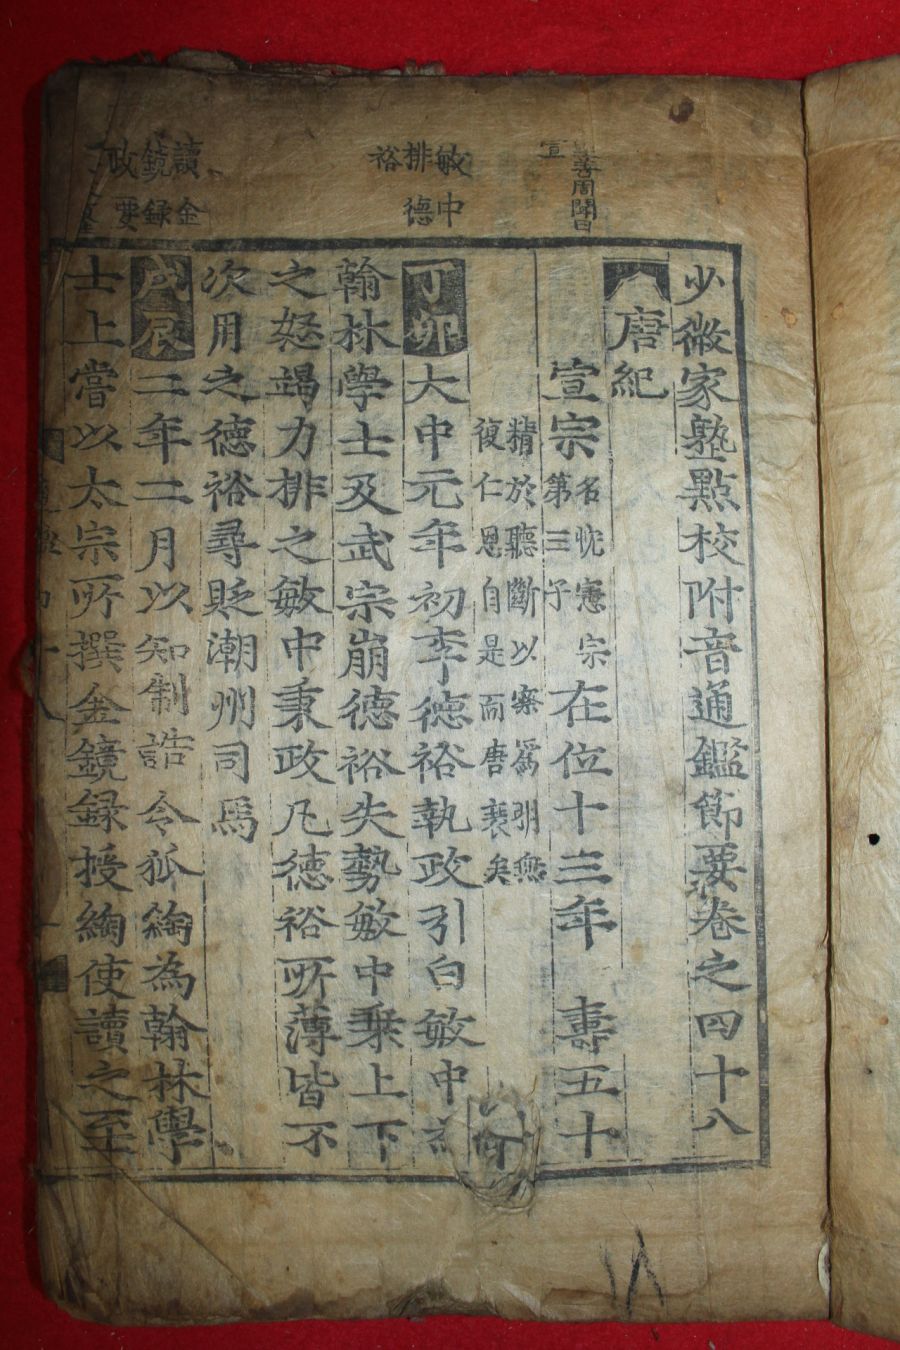 少微家塾點校附音通鑑節要卷之四十八
唐紀
宣宗名忱憲宗第三子在位十三年 壽五十
精於聽斷以察爲明無復仁恩自是而唐衰矣
丁卯大中元年初李德裕執政引白敏中
翰林學士及武宗崩德裕失勢敏中乗上下
之怒竭力排之敏中秉政凡德裕所薄皆不
次用之德裕尋貶潮州司馬
戊辰二年二月以知制誥令狐綯為翰林學
士上嘗以太宗所撰金鏡録授綯使讀之至
宣
敏中
排德
裕
讀金
鏡録
政要